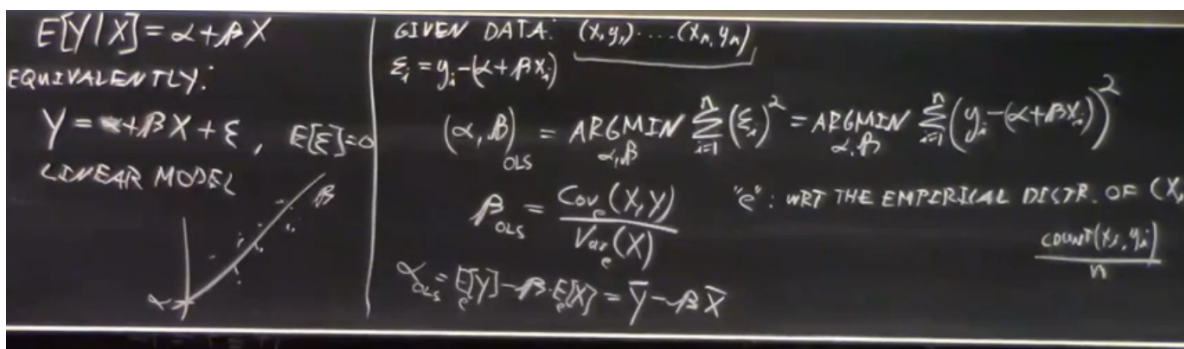 E[Y|X] = α+βX
EQUIVALENTLY:
Y = α+βX+ε, E[ε]=0
LINEAR MODEL
β
α
GIVEN DATA: (x₁y₁)....(xₙ,yₙ)
ε_i = y_i-(α+βx_i)
(α,β)_OLS = ARGMIN_α,β Σ_{i=1}^n (ε_i)² = ARGMIN_α,β Σ_{i=1}^n (y_i-(α+βx_i))²
β_OLS = Cov_e(X,Y) / Var_e(X)
"e": WRT THE EMPIRICAL DISTR. OF (X,
count(x_i,y_i) / n
α_OLS = E_e[Y]-β·E_e[X] = Ȳ-βX̄